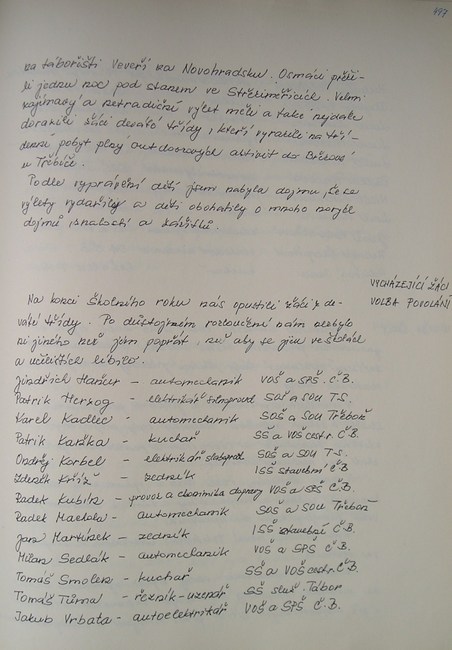 497
na tábořišti Veveří na Novohradsku. Osmáci přeži-
li jednu noc pod stanem ve Střižmířicích. Velmi
zajímavý a netradiční výlet měli a také nejdále
dorazili žáci deváté třídy, kteří vyrazili na tří-
denní pobyt plný outdoorových aktivit do
u Třebíče.
Podle vyprávění dětí jsem nabyla dojmu, že se
výlety vydařily a děti obohatily o mnoho nových
dojmů, znalostí a zážitků.
VYCHÁZEJÍCÍ ŽÁCI
VOLBA POVOLÁNÍ
Na konci školního roku nás opustili žáci z de-
váté třídy. Po důstojném rozloučení nám nezbylo
nic jiného než jim popřát, než aby se jim ve školách
a učilištích líbilo.
Jindřich - automechanik VOŠ a SPŠ Č.B.
Patrik Herzog - elektrikář silnoproud SOŠ a SOU T.S.
Karel Kadlec - automechanik SOŠ a SOU Třeboň
Patrik Kaňka - kuchař SŠ a VOŠ cestr. Č.B.
Ondřej Korbel - elektrikář slaboproud SOŠ a SOU T.S.
Zdeněk Kříž - zedník ISŠ stavební Č.B.
Radek Kubín - provoz a ekonomika dopravy VOŠ a SPŠ Č.B.
Radek Machola - automechanik SOŠ a SOU Třeboň
Jan Martínek - zedník ISŠ stavební Č.B.
Milan Sedlák - automechanik VOŠ a SPŠ Č.B.
Tomáš Smolen - kuchař SŠ a VOŠ cestr. Č.B.
Tomáš Tůma - řezník-uzenář SŠ služ. Tábor
Jakub Vrbata - autoelektrikář VOŠ a SPŠ Č.B.